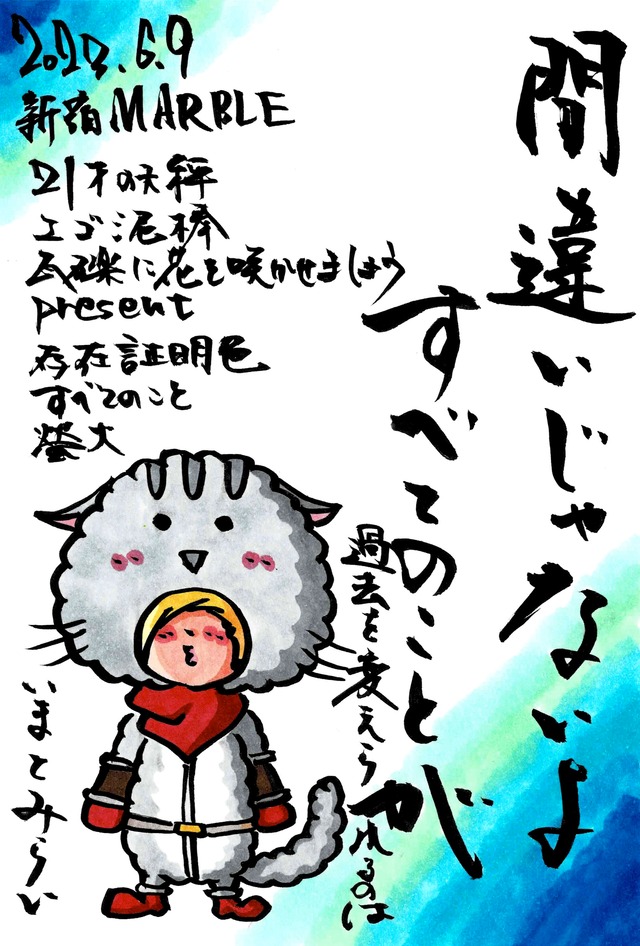 間違いじゃないよ
すべてのことが
過去を変えられるのは
いまとみらい
2023.6.9
新宿MARBLE
21才の天秤
エゴ泥棒
瓦礫に花を咲かせましょう
present
存在証明色
すべてのこと